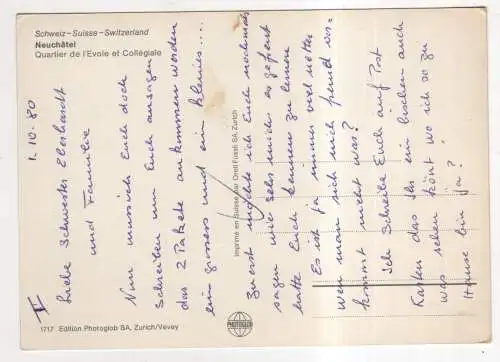 Schweiz – Suisse – Switzerland
Neuchâtel
Quartier de l'Evole et Collégiale
1.10.80
Liebe Schwester Eberhardt
und Familie
Nun muss ich Euch doch
schreiben um Euch ansagen
das 2 Pakete ankommen werden
ein grosses und ein kleines....
Zu erst möchte ich Euch nochmals
sagen wie sehr mich es gefreut
hatte Euch kennen zu lernen
Es ist ja immer viel netter
wen man sich nich fremd vor-
kommt nicht was?
Ich schreibe Euch auf Post
Karten das Ihr ein bischen auch
was sehen könt wo ich so zu
Hause bin ja?
II
Imprimé en Suisse par Orell Füssli SA, Zurich
PHOTOGLOB
1717 Edition Photoglob SA, Zurich/Vevey